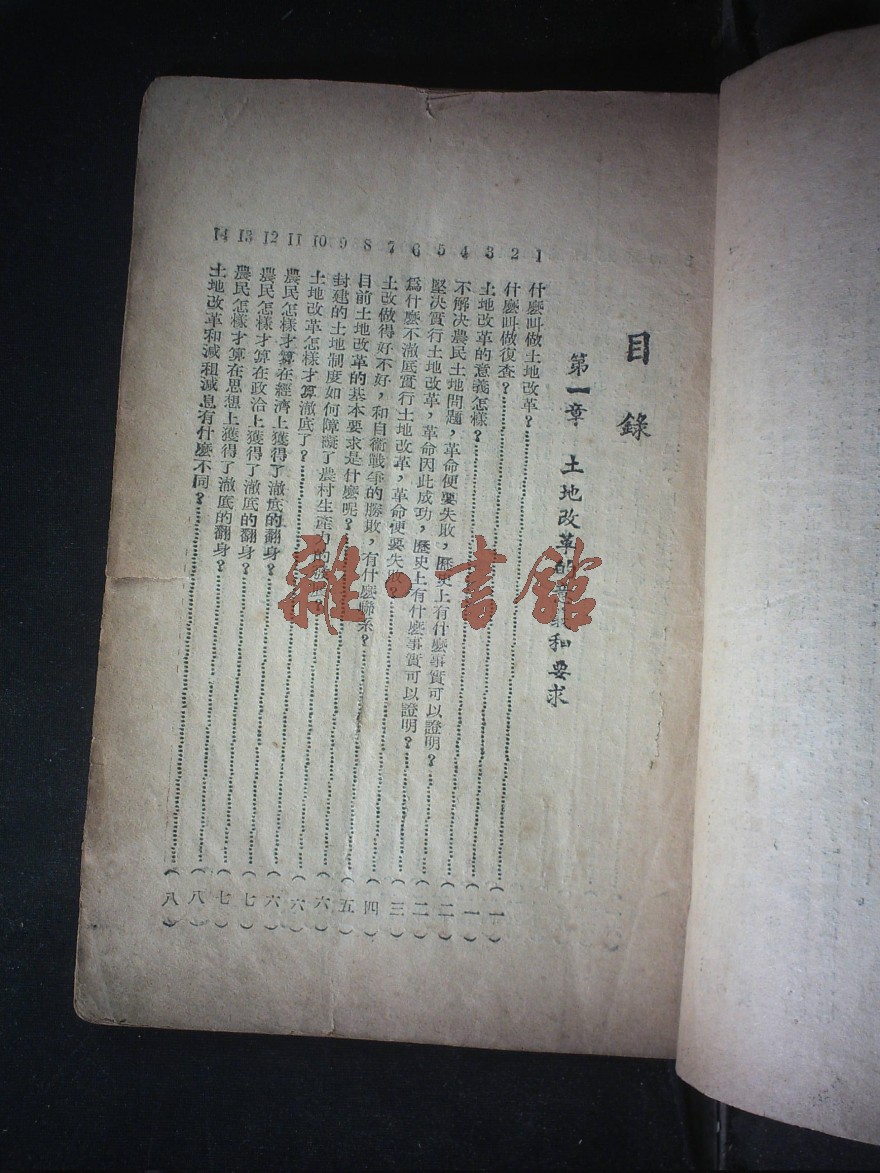 目錄
第一章 土地改革的意義和要求
1 什麼叫做土地改革?……(一)
2 什麼叫做復查?……(一)
3 土地改革的意義怎樣?……(一)
4 不解決農民土地問題,革命便要失敗,歷史上有什麼事實可以證明?……(二)
5 堅決實行土地改革,革命因此成功,歷史上有什麼事實可以證明?……(二)
6 爲什麼不澈底實行土地改革,革命便要失敗?……(三)
7 土改做得好不好,和自衛戰爭的勝敗,有什麼聯系?……(四)
8 目前土地改革的基本要求是什麼呢?……(五)
9 封建的土地制度如何障礙了農村生產力的發展?……(六)
10 土地改革怎樣才算澈底了?……(六)
11 農民怎樣才算在經濟上獲得了澈底的翻身?……(六)
12 農民怎樣才算在政治上獲得了澈底的翻身?……(七)
13 農民怎樣才算在思想上獲得了澈底的翻身?……(七)
14 土地改革和減租減息有什麼不同?……(八)
(八)
雜·書館